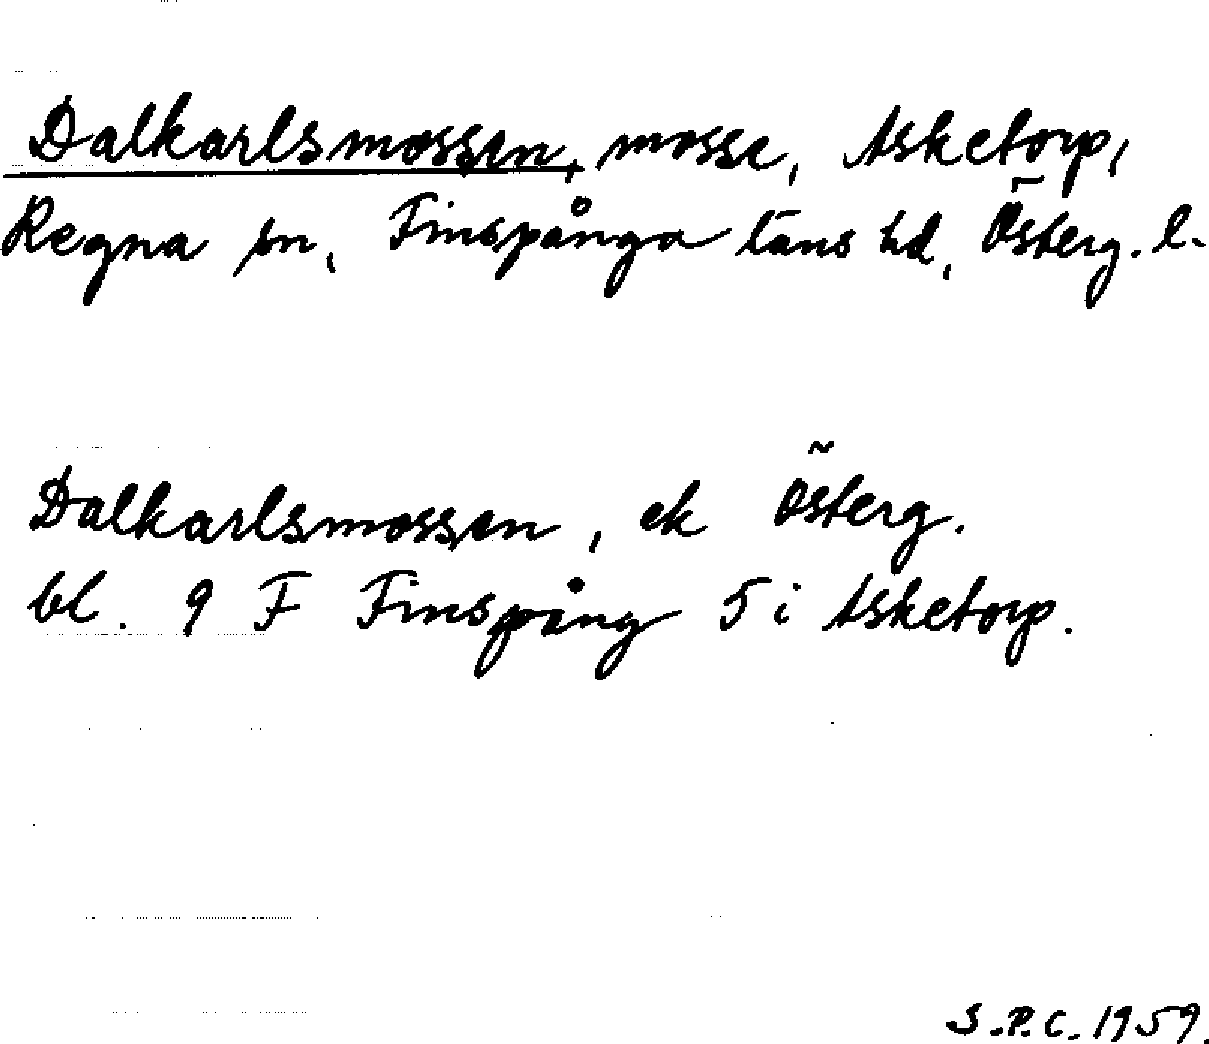 Dalkarlsmossen, mosse, Asketorp,
Regna sn, Finspånga läns hd, Österg. l.
Dalkarlsmossen, ek Österg.
bl. 9 F Finspång 5 i Asketorp.
S.P.C. 1959.